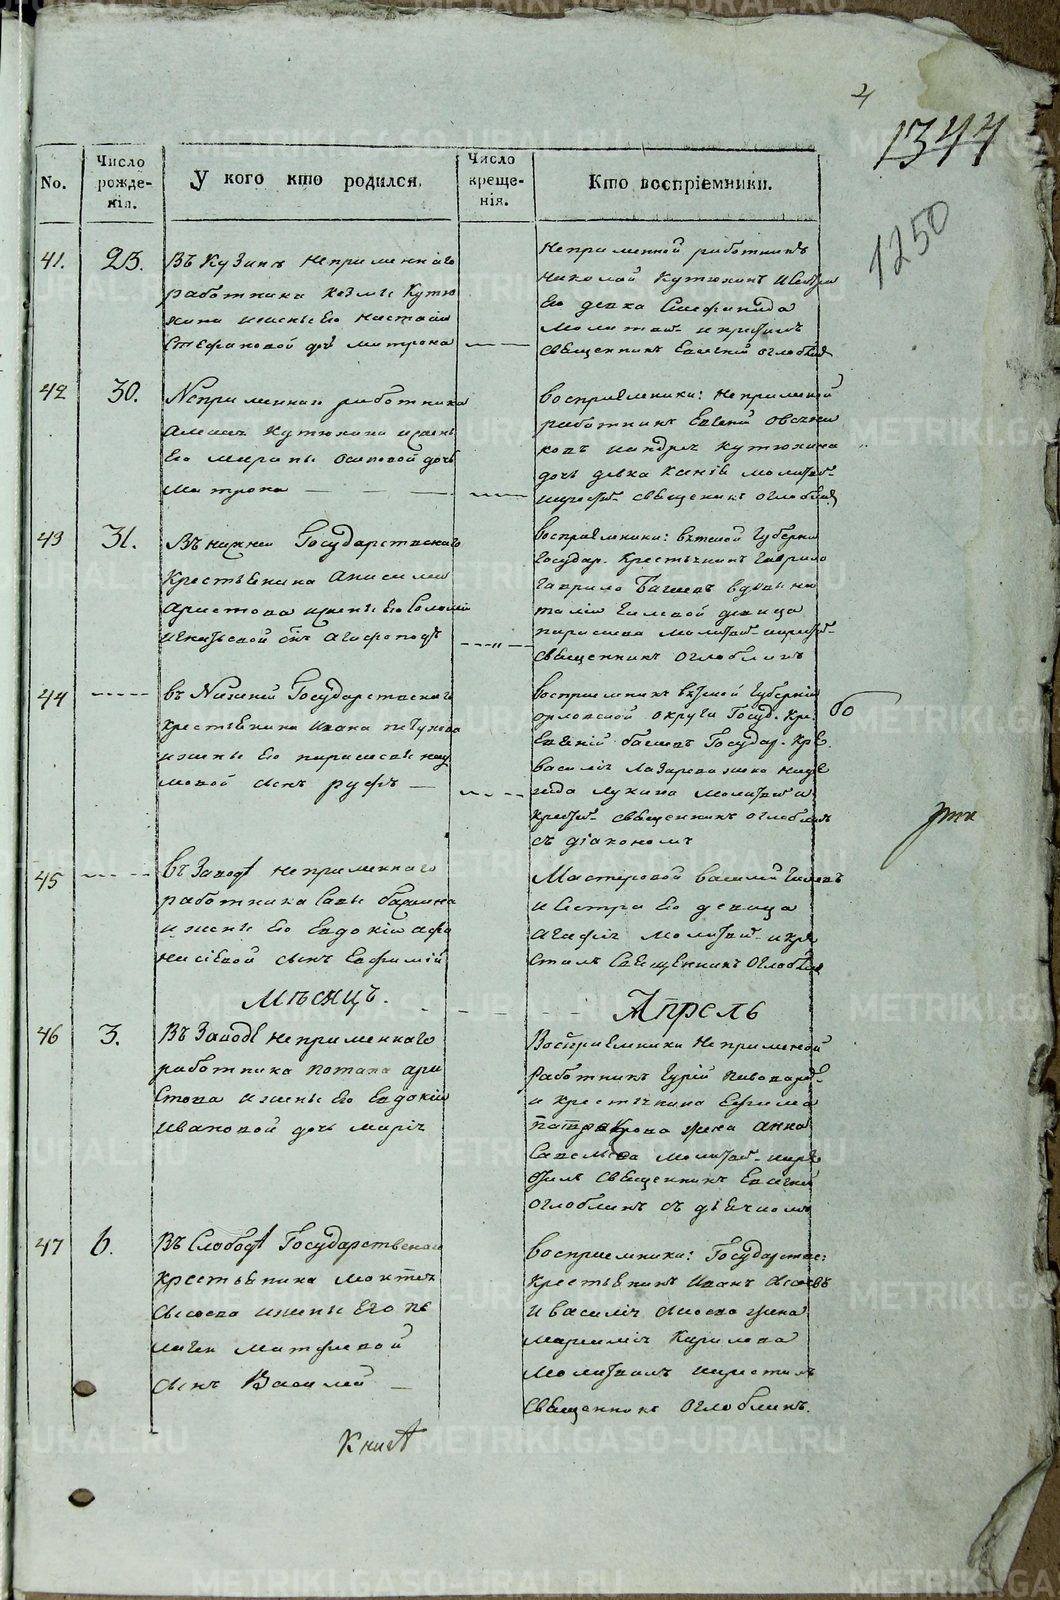 4
1344
1250
No.
Число рожденія.
У кого кто родился.
Число крещенія.
Кто воспріемники.
41.
23.
Въ Кузинѣ непременнаго
работника Козмы Кутю
хина и жены его Настасіи
Стефановой дочь матрона
непременной работникъ
николай Кутюхинъ и
его девка Стефанида
молитвов. и крестилъ
священникъ Евгений оглоблин
42
30.
Непременнаго работника
Кутюхина и жены
его марины осиповой дочь
матрона
воспріемники: непременной
работникъ Евгений овсянни
ковъ и андрея Кутюхина
дочь девка молитвов.
и крестил. священникъ оглоблин
43
31.
Въ нижней Государственаго
Крестьянина анисима
аристова и жены его Соломіи
игнатьевой сынъ агафоподъ
воспріемники: вятской Губерни
Государ. Крестьянинъ Гаврило
Гаврило вдовы на
таліи девица
параскева молитвов. и крестил.
священникъ оглоблинъ
44
въ Нижней Государственаго
крестьянина ивана пичугова
и жены его параскевы нау
мовой сынъ руфъ
воспріемникъ вятской Губерніи
орловской округи Госуд. Кре.
Евгеній Государ. Кре.
василья Лазарева жена наде
жда Лукина молитвов. и
крестил. священникъ оглоблинъ
съ діакономъ
45
въ Заводѣ непременнаго
работника Савы
и жены его Евдокіи афо
насіевой сынъ Евфимій
Мастеровой василий
и Сестра его девица
агафія молитвов. и кре
стилъ Священникъ Оглоблин
Мѣсяцъ.
Апрель
46
3.
Въ Заводѣ непременнаго
работника потапа ари
стова и жены его Евдокіи
ивановой дочь марія
Воспріемники непременной
работникъ Гурій пивоваров
и крестьянина Ефима
жена анна
Савельева молитвов. и кре
стилъ священникъ Евгеній
оглоблинъ съ дьячкомъ
47
6.
Въ Слободѣ Государственаго
крестьянина мокея
сысоева и жены его пе
лагеи матфеевой
сынъ Василей
воспріемники: Государстве:
крестьянинъ иванъ Сысоевъ
и василья Сысоева жена
Кирилова
молитвилъ и крестилъ
священникъ оглоблинъ.
Книгѣ
METRIKI.GASO-URAL.RU